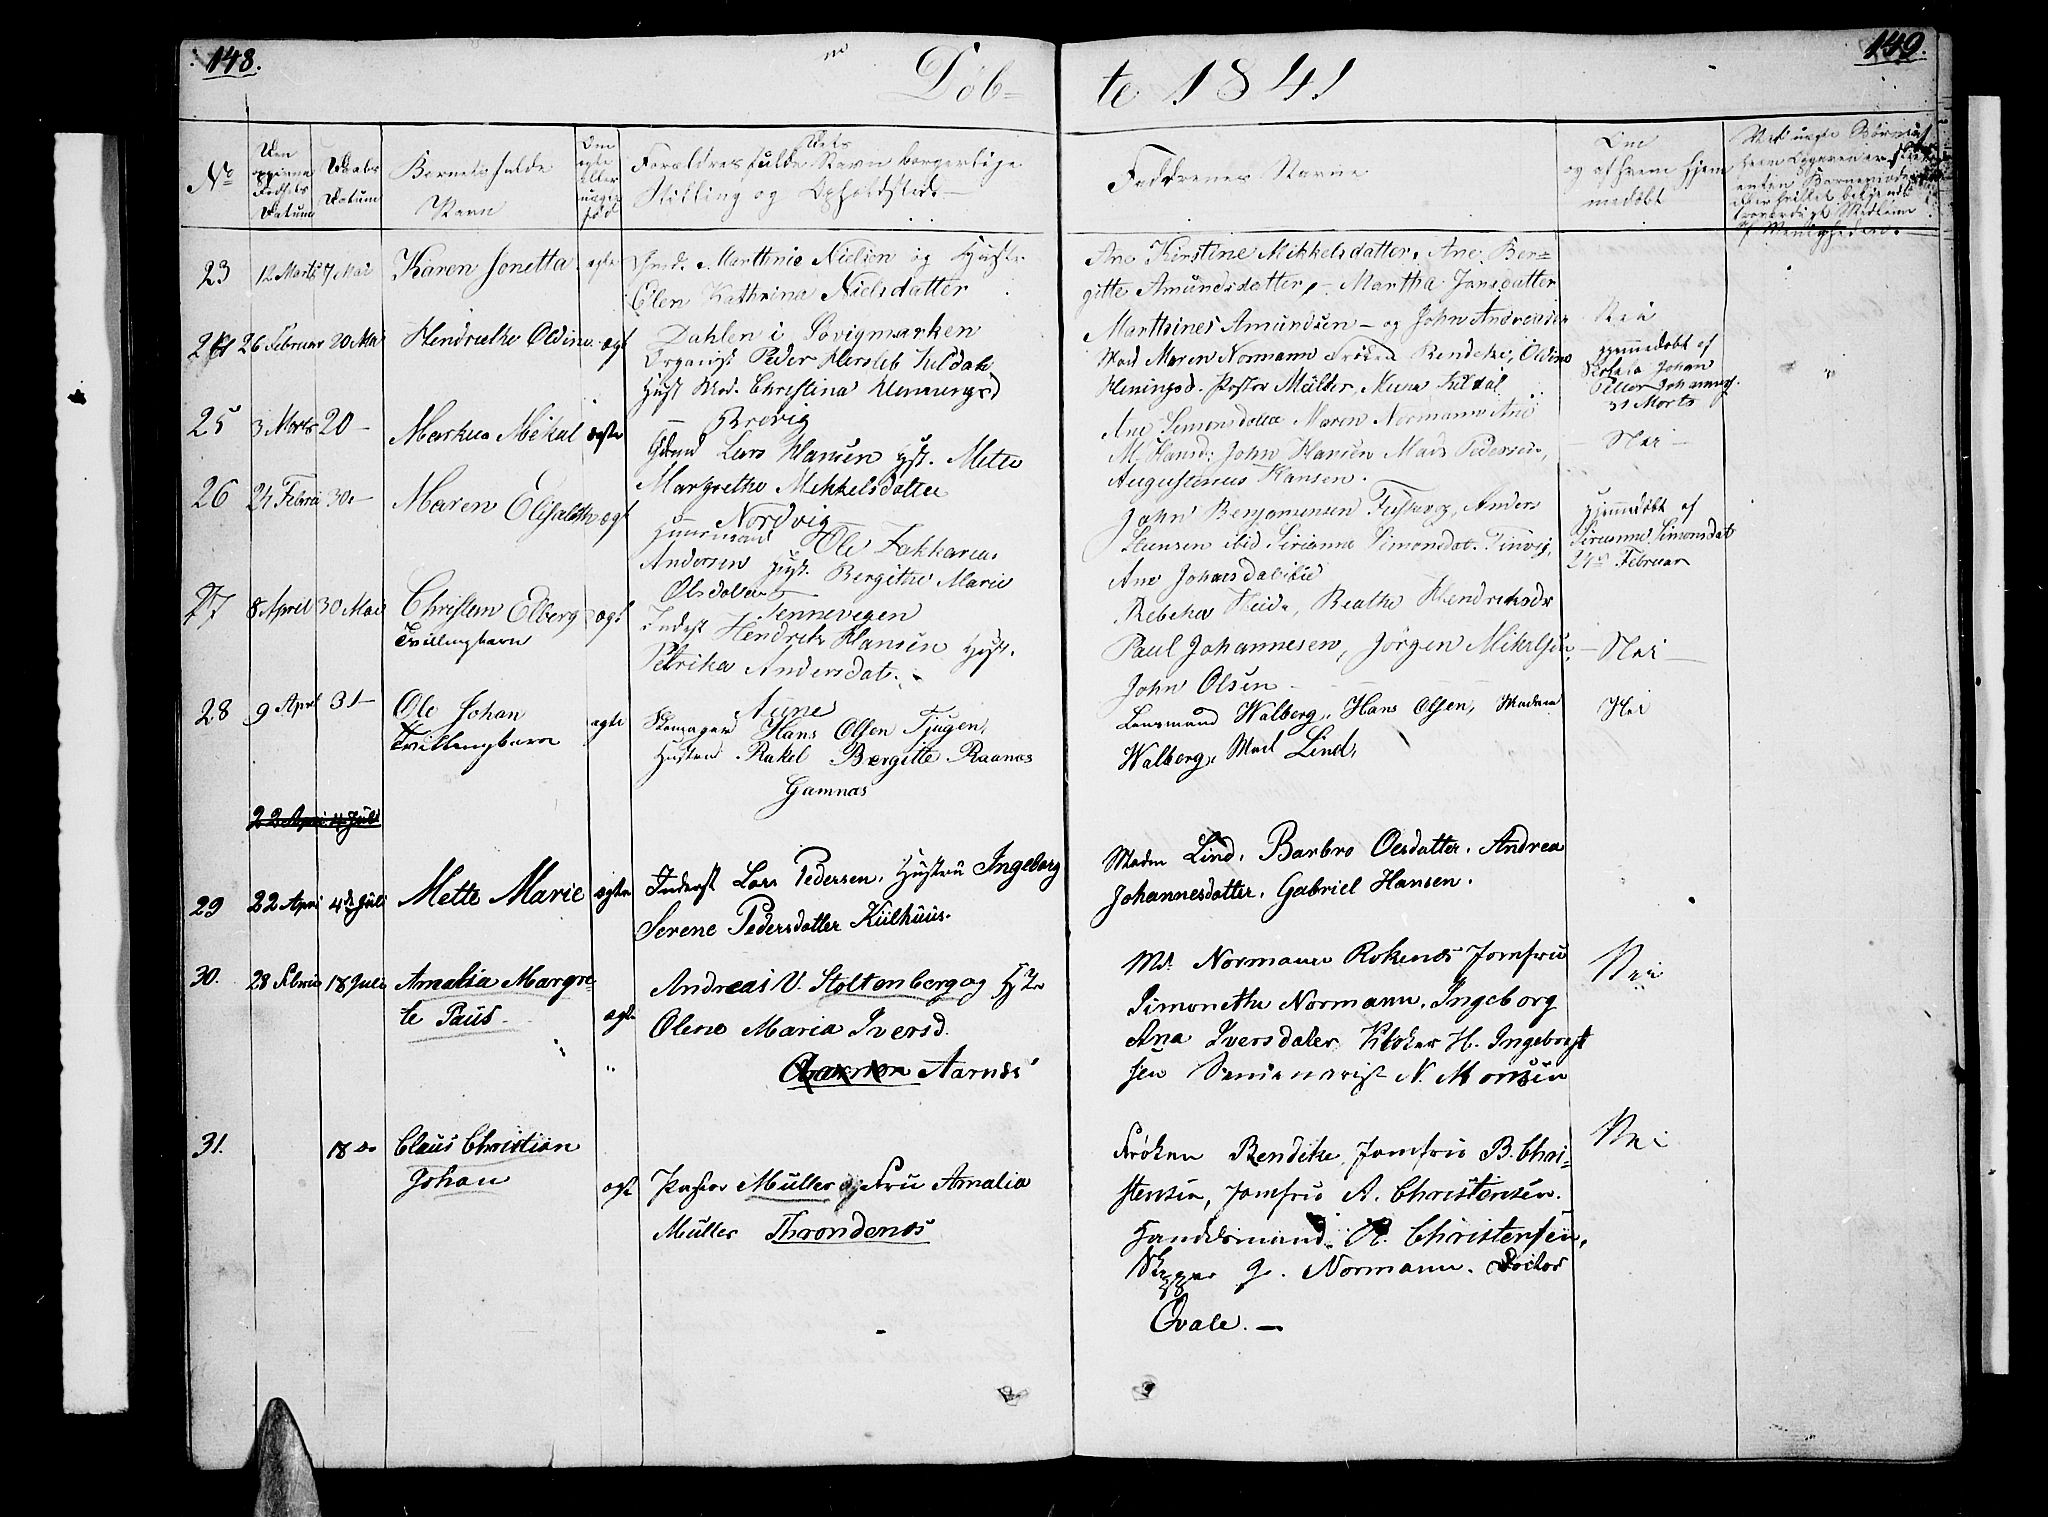 148.
149.
Döb=
te 1841
No
Den
Fødsels
Datum
Daabs
Datum
Barnets fulde
Navn
Om
ægte
eller
uægte
fød
Forældres fulde Navn borgerlige
Stilling og Opholdsted
Faddrenes Navne
Om
og af hvem hjem
medøbt
Ved uægte Børn
23 12 Marts 7 Mai Karen Jonetta ægte Marthnis Nielsen og Hustr
Elen Kathrina Nielsdatter
Dahlen i
Ane Kirstine Mikkelsdatter, Ane Ber=
gitte Amundsdatter, – Martha Jansdatter
Marthines Amundsen – og John Andreasen
Nei
24 26 Februar 20 Mai Hendrikke Oldine ægt
Organist Peder Hersleb Kildal
Hust Mad. Christina Henningsd
Brevig
Mad Maren Normann Frøken Rendeke, Oldine
Heningsd. Pastor Müller, Kildal
hjemmedøbt af
Johan
Peter Johannes.
31 Marts
25 3 Marts 20 – Markus Mikal ægte
Lars Hansen Hst. Mette
Margrethe Mekkelsdatter
Nordvig
Ane Simonsdatter Maren Normann Ane
M. Hansd: John Hansen Mads Pedersen,
Augustinus Hansen.
– Nei –
26 24 Februar 30e – Maren Elisabeth ægt
Huusmand Ole Zakharias
Andersen Hust. Bergithe Marie
Olsdatter
Tennevegen
John Benjaminsen Anders
Steensen ibid Sirianna Simonsdat.
Ane Johansdat ibid
hjemmedøbt af
Sirianna Simonsdat
24de Februar
27 8 April 30 Mai Christen Edberg ægt
Tvillingbarn
Inderst Hendrik Hansen Hust.
Petrika Andersdat.
Aune
Rebeka Heide, Beathe Hendriksdr
Paul Johannesen, Jörgen Mikelsen
John Olsen
– Nei –
28 9 April 31 – Ole Johan ægte
Tvillingbarn
Skomager Hans Olsen Tjugen,
Hustru Rakel Bergitte Raanas
Gamnas
Lensmand Walberg, Hans Olsen, Madam
Walberg, Mad Lind,
Nei
22 April 4 Juli
29 22 April 4de Juli Mette Marie ægte Inderst Lars Pedersen, Hustru Ingeborg
Serene Pedersdatter Kiilhuus.
Madm Lind, Barbro Oesdatter, Andrea
Johannesdatter, Gabriel Hansen.
30. 28 Februar 18 Juli Amalia Margre=
te Paus ægte
Andreas V. Stoltenberg og H
Olene Maria Iversd.
Aarnes
Md. Normann Rokenes Jomfru
Simonethe Normann, Ingeborg
Ana Iversdater Kloker H. Ingebrigt
sen Seminarist N. Monsen
Nei
31. 18 do Claus Christian
Johan ægte
Pastor Müller og Fru Amalia
Müller Throndenes
Frøken Rendeke, Jomfru B. Chri=
stensen, Jomfru A. Christensen.
Handelsmand. R. Christensen,
Skipper G. Normann. Doctor
Qvale. –
Nei